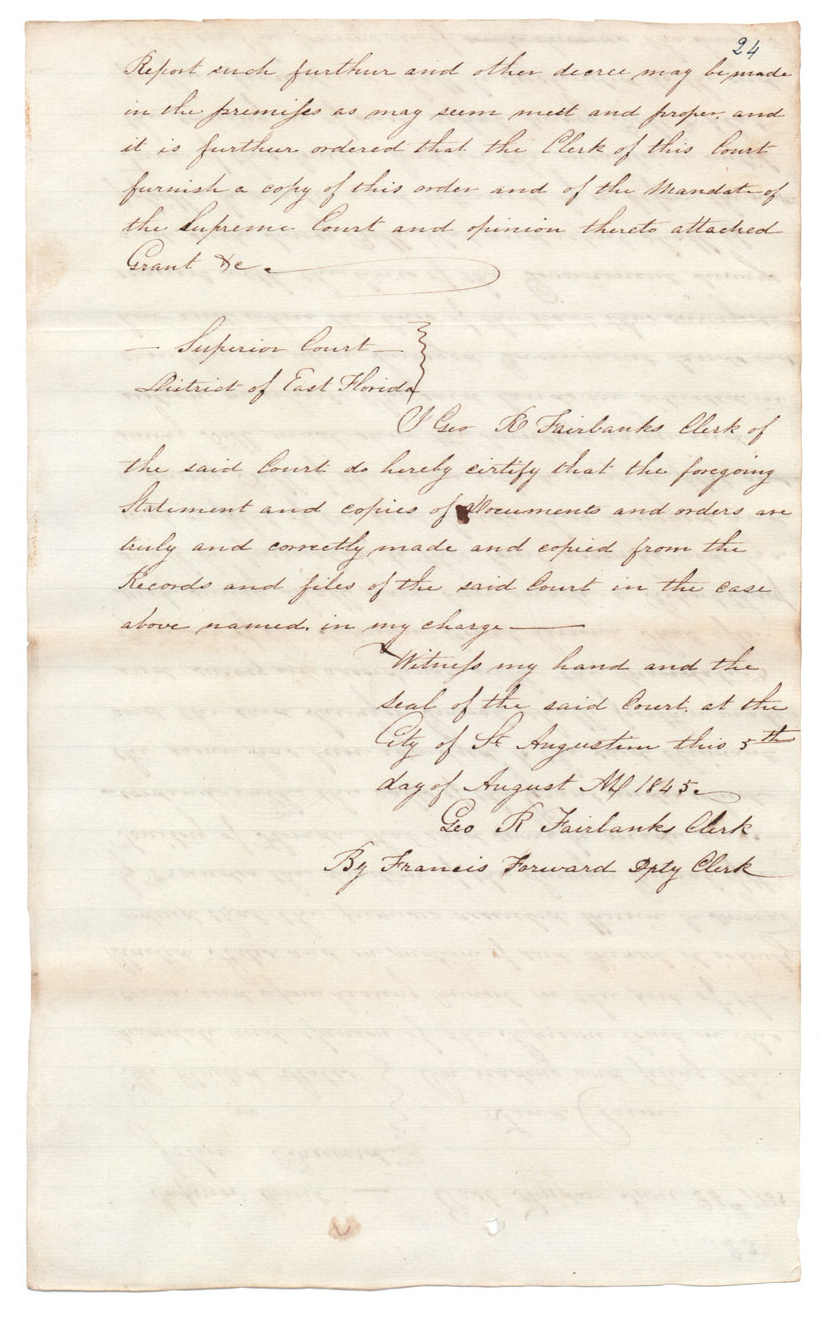 24
Report such further and other decree may be made
in the premises as may seem meet and proper, and
it is further ordered that the Clerk of this Court
furnish a copy of this order and of the Mandate of
the Supreme Court and opinion thereto attached
Grant &c.
— Superior Court —
District of East Florida
I Geo R Fairbanks Clerk of
the said Court do hereby certify that the foregoing
Statement and copies of Documents and orders are
truly and correctly made and copied from the
Records and files of the said Court in the case
above named. in my charge —
Witness my hand and the
seal of the said Court. at the
City of St Augustine this 5th
day of August AD 1845.
Geo R Fairbanks Clerk
By Francis Forward Dpty Clerk